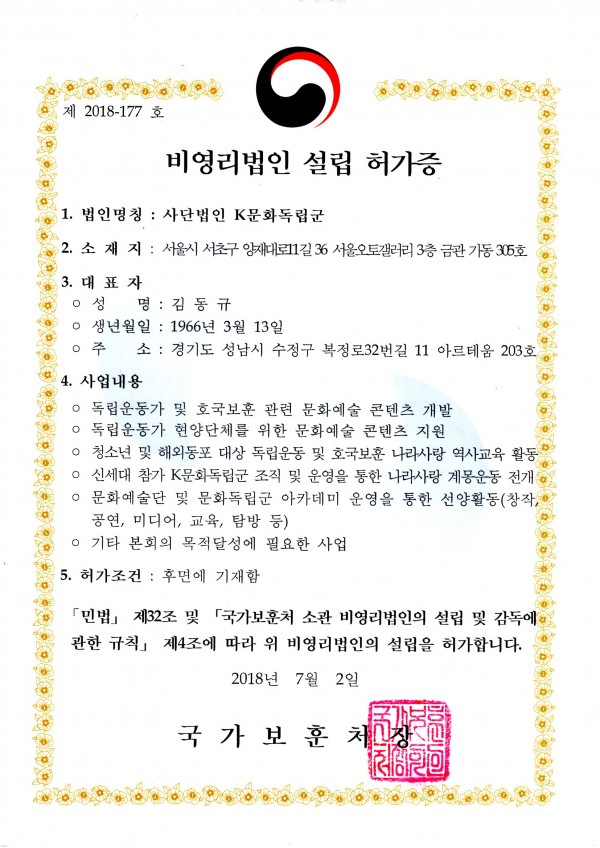 제 2018-177 호
비영리법인 설립 허가증
1. 법인명칭 : 사단법인 K문화독립군
2. 소 재 지 : 서울시 서초구 양재대로11길 36 서울오토갤러리 3층 금관 가동 305호
3. 대 표 자
○ 성 명 : 김 동 규
○ 생년월일 : 1966년 3월 13일
○ 주 소 : 경기도 성남시 수정구 복정로32번길 11 아르테움 203호
4. 사업내용
○ 독립운동가 및 호국보훈 관련 문화예술 콘텐츠 개발
○ 독립운동가 현양단체를 위한 문화예술 콘텐츠 지원
○ 청소년 및 해외동포 대상 독립운동 및 호국보훈 나라사랑 역사교육 활동
○ 신세대 참가 K문화독립군 조직 및 운영을 통한 나라사랑 계몽운동 전개
○ 문화예술단 및 문화독립군 아카데미 운영을 통한 선양활동(창작,
공연, 미디어, 교육, 탐방 등)
○ 기타 본회의 목적달성에 필요한 사업
5. 허가조건 : 후면에 기재함
「민법」 제32조 및 「국가보훈처 소관 비영리법인의 설립 및 감독에
관한 규칙」 제4조에 따라 위 비영리법인의 설립을 허가합니다.
2018년 7월 2일
국 가 보 훈 처 장